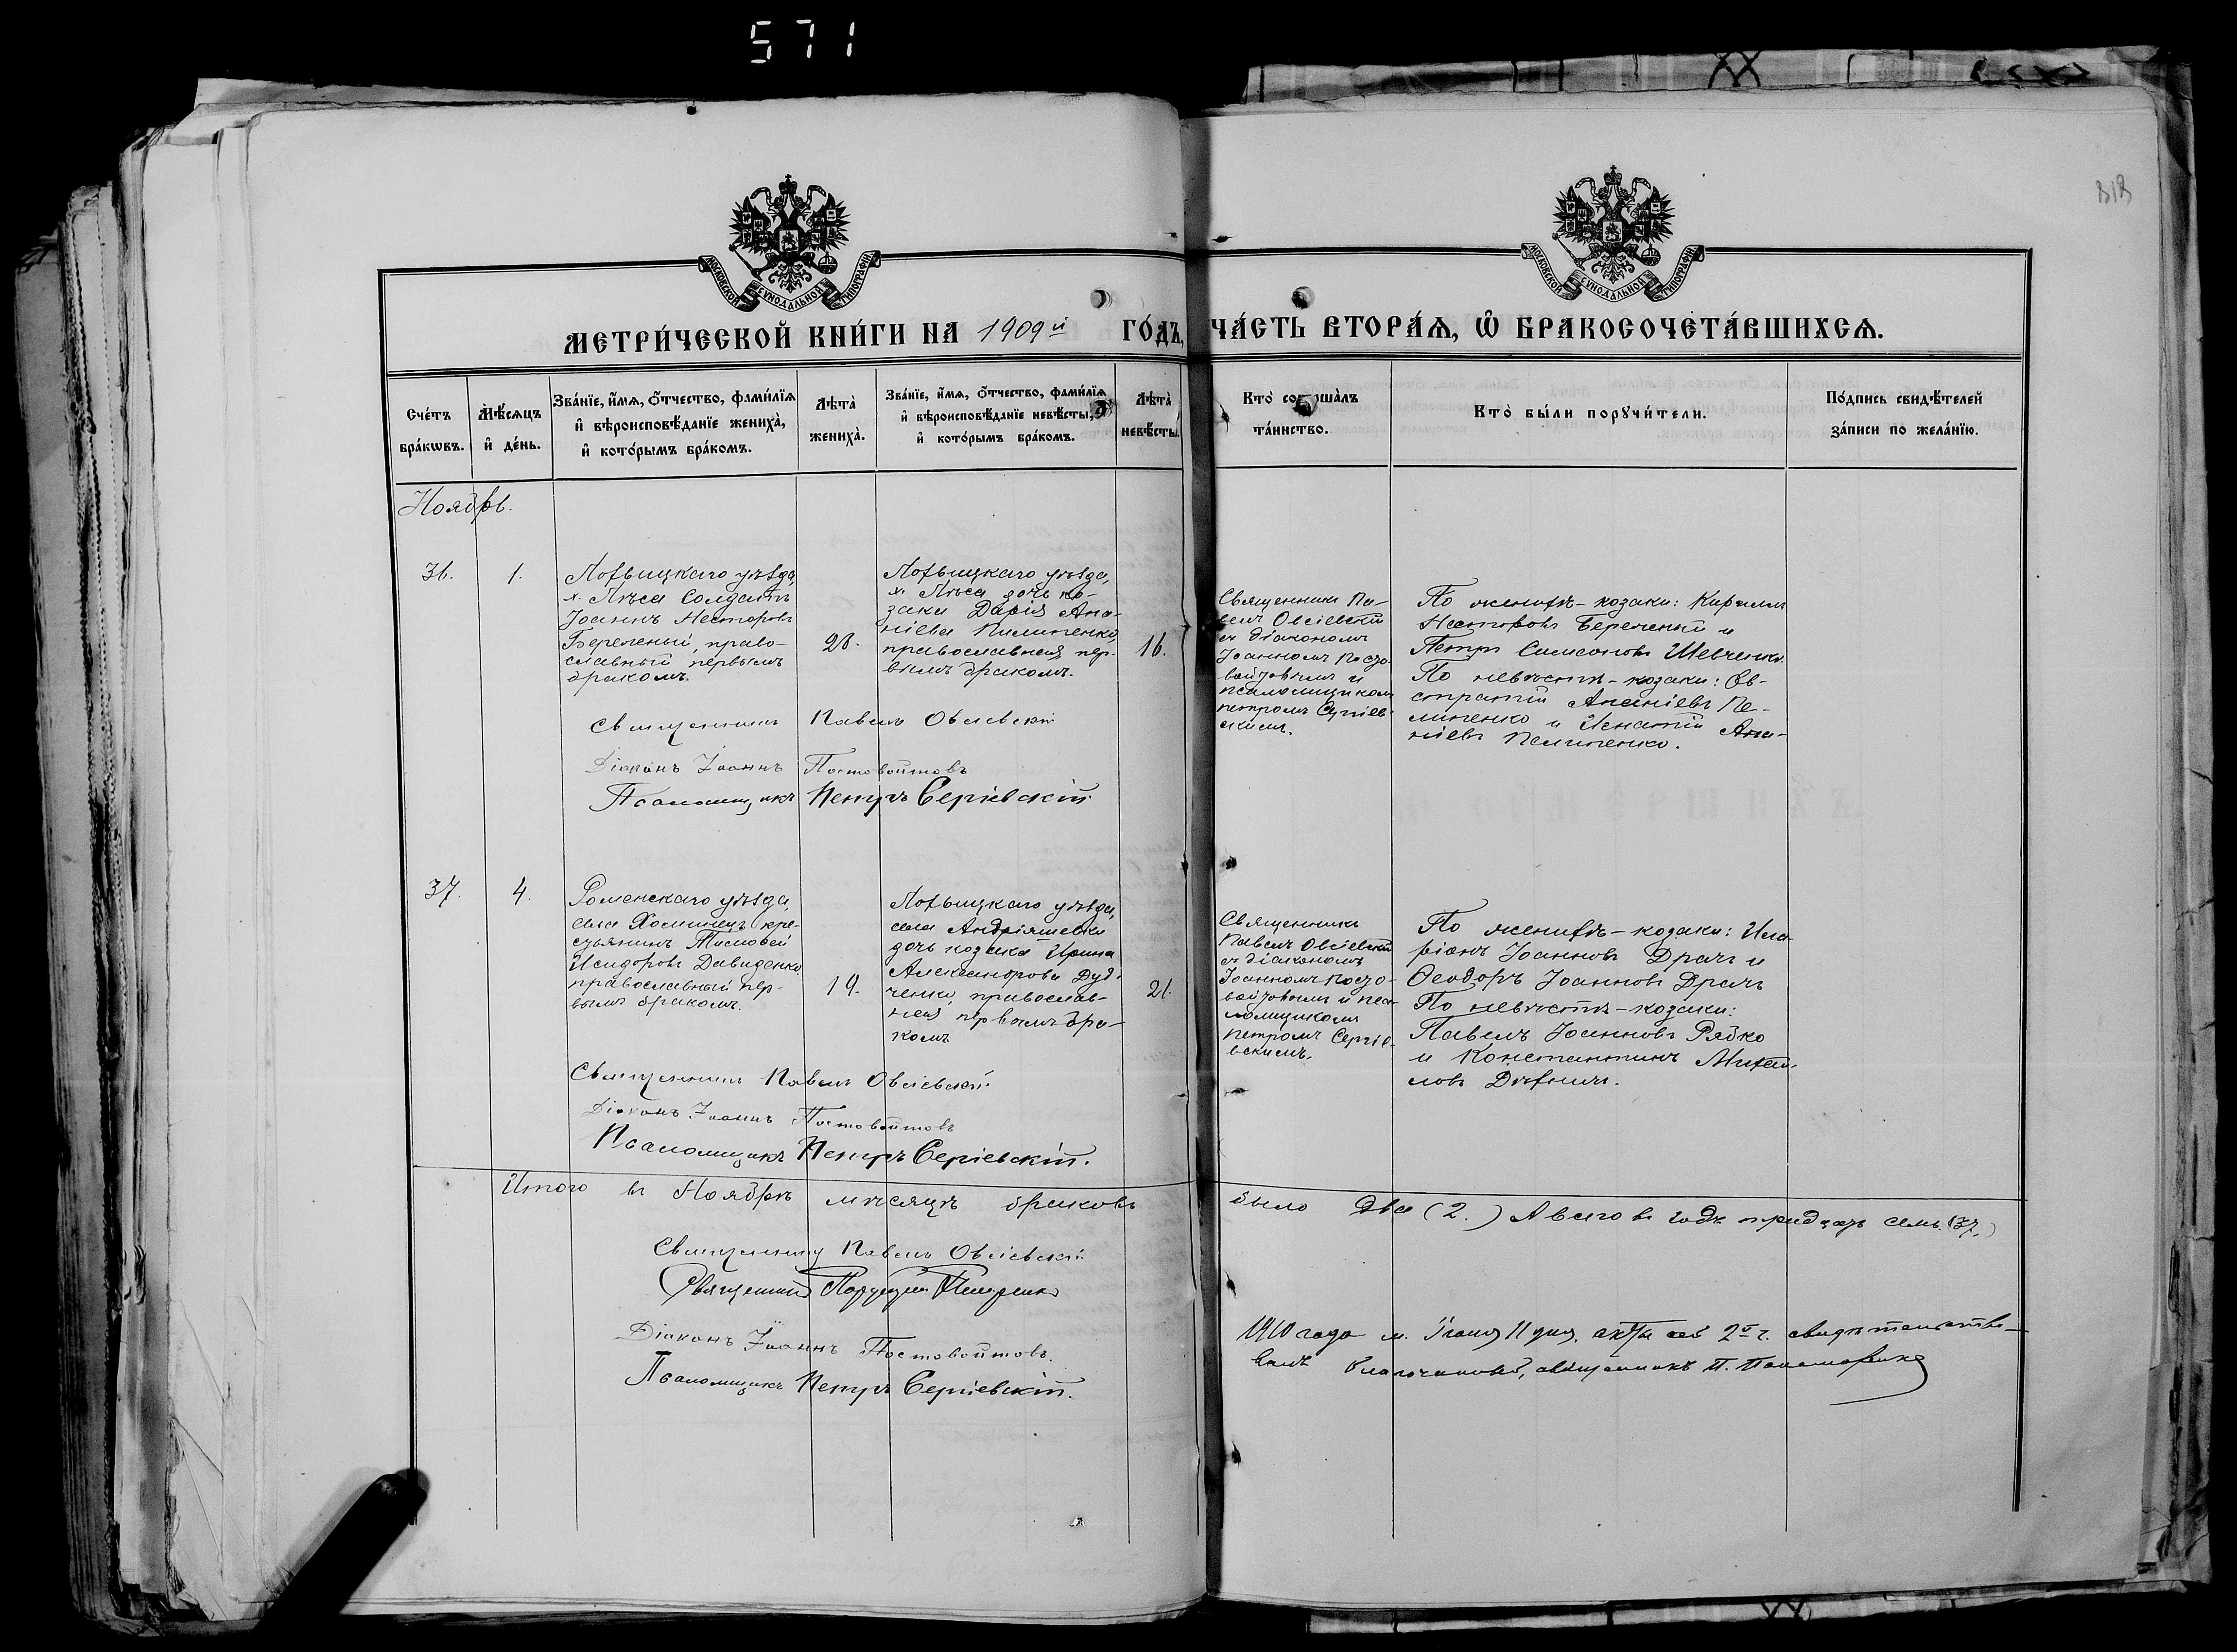 571
МОСКОВСКОЙ СУНОДАЛЬНОЙ ТИПОГРАФІИ
МОСКОВСКОЙ СУНОДАЛЬНОЙ ТИПОГРАФІИ
МЕТРИ́ЧЕСКОЙ КНИ́ГИ НА 1909й ГО́ДЪ, ЧА́СТЬ ВТОРА́Ѧ, Ѡ҆ БРАКОСОЧЕТА́ВШИХСѦ.
Сче́тъ
бра́кѡвъ.
Мѣ́сѧцъ
и҆ де́нь.
Зва́нїе, и҆́мѧ, ѻ҆́тчество, фами́лїѧ
и҆ вѣроисповѣ́данїе жениха̀,
и҆ кото́рымъ бра́комъ.
Лѣта̀
жениха̀.
Зва́нїе, и҆́мѧ, ѻ҆́тчество, фами́лїѧ
и҆ вѣроисповѣ́данїе невѣ́сты,
и҆ кото́рымъ бра́комъ.
Лѣта̀
невѣ́сты.
Кто̀
та́инство.
Кто̀ бы́ли порꙋчи́тели.
По́дпись свидѣ́телей
за́писи по жела́нїю.
Ноябрь.
36.
1.
Лохвицкаго уѣзда,
х. Лѣса Солдатъ
Іоаннъ Несторовъ
Береченый, право-
славный первымъ
бракомъ.
20.
Лохвицкаго уѣзда,
х. Лѣса дочь ко-
зака Дарія Ана-
ніева Пилипенко,
православная, пер-
вымъ бракомъ.
16.
Священникъ Па-
велъ Овсіевскій
съ діакономъ
Іоанномъ Посто-
войтовымъ и
псаломщикомъ
Петромъ Сергіев-
скимъ.
По женихѣ - козаки: Кириллъ
Несторовъ Береченый и
Петръ Симеоновъ Шевченко.
По невѣстѣ - козаки: Ев-
стратій Ананіевъ Пе-
липенко и Игнатій Ана-
ніевъ Пелипенко.
Священникъ Павелъ Овсіевскій
Діаконъ Іоаннъ Постовойтовъ
Псаломщикъ Петръ Сергіевскій
37.
4.
Роменскаго уѣзда,
села Хоминецъ кре-
стьянинъ Тимофей
Исидоровъ Давиденко
православный пер-
вымъ бракомъ.
19.
Лохвицкаго уѣзда,
села Андріяшевки
дочь козака Ирина
Александрова Дуд-
ченко, православ-
ная первымъ бра-
комъ
21.
Священникъ
Павелъ Овсіевскій
съ діакономъ
Іоанномъ Посто-
войтовымъ и псал-
ломщикомъ
Петромъ Сергіе-
вскимъ.
По женихѣ - козаки: Ила-
ріонъ Іоанновъ Драчъ и
Ѳеодоръ Іоанновъ Драчъ
По невѣстѣ - козаки:
Павелъ Іоанновъ Рябко
и Константинъ Михаи-
ловъ
Священникъ Павелъ Овсіевскій.
Діаконъ Іоаннъ Постовойтовъ
Псаломщикъ Петръ Сергіевскій.
Итого въ Ноябрѣ мѣсяцѣ браковъ было два (2.) А всего въ годѣ тридцать семь. (37.)
Священникъ Павелъ Овсіевскій
Священникъ
Діаконъ Іоаннъ Постовойтовъ.
Псаломщикъ Петръ Сергіевскій.
1910 года м. 11 дня, 2й ч. свидѣтельство-
валъ благочинный, священникъ П. Пономаренко